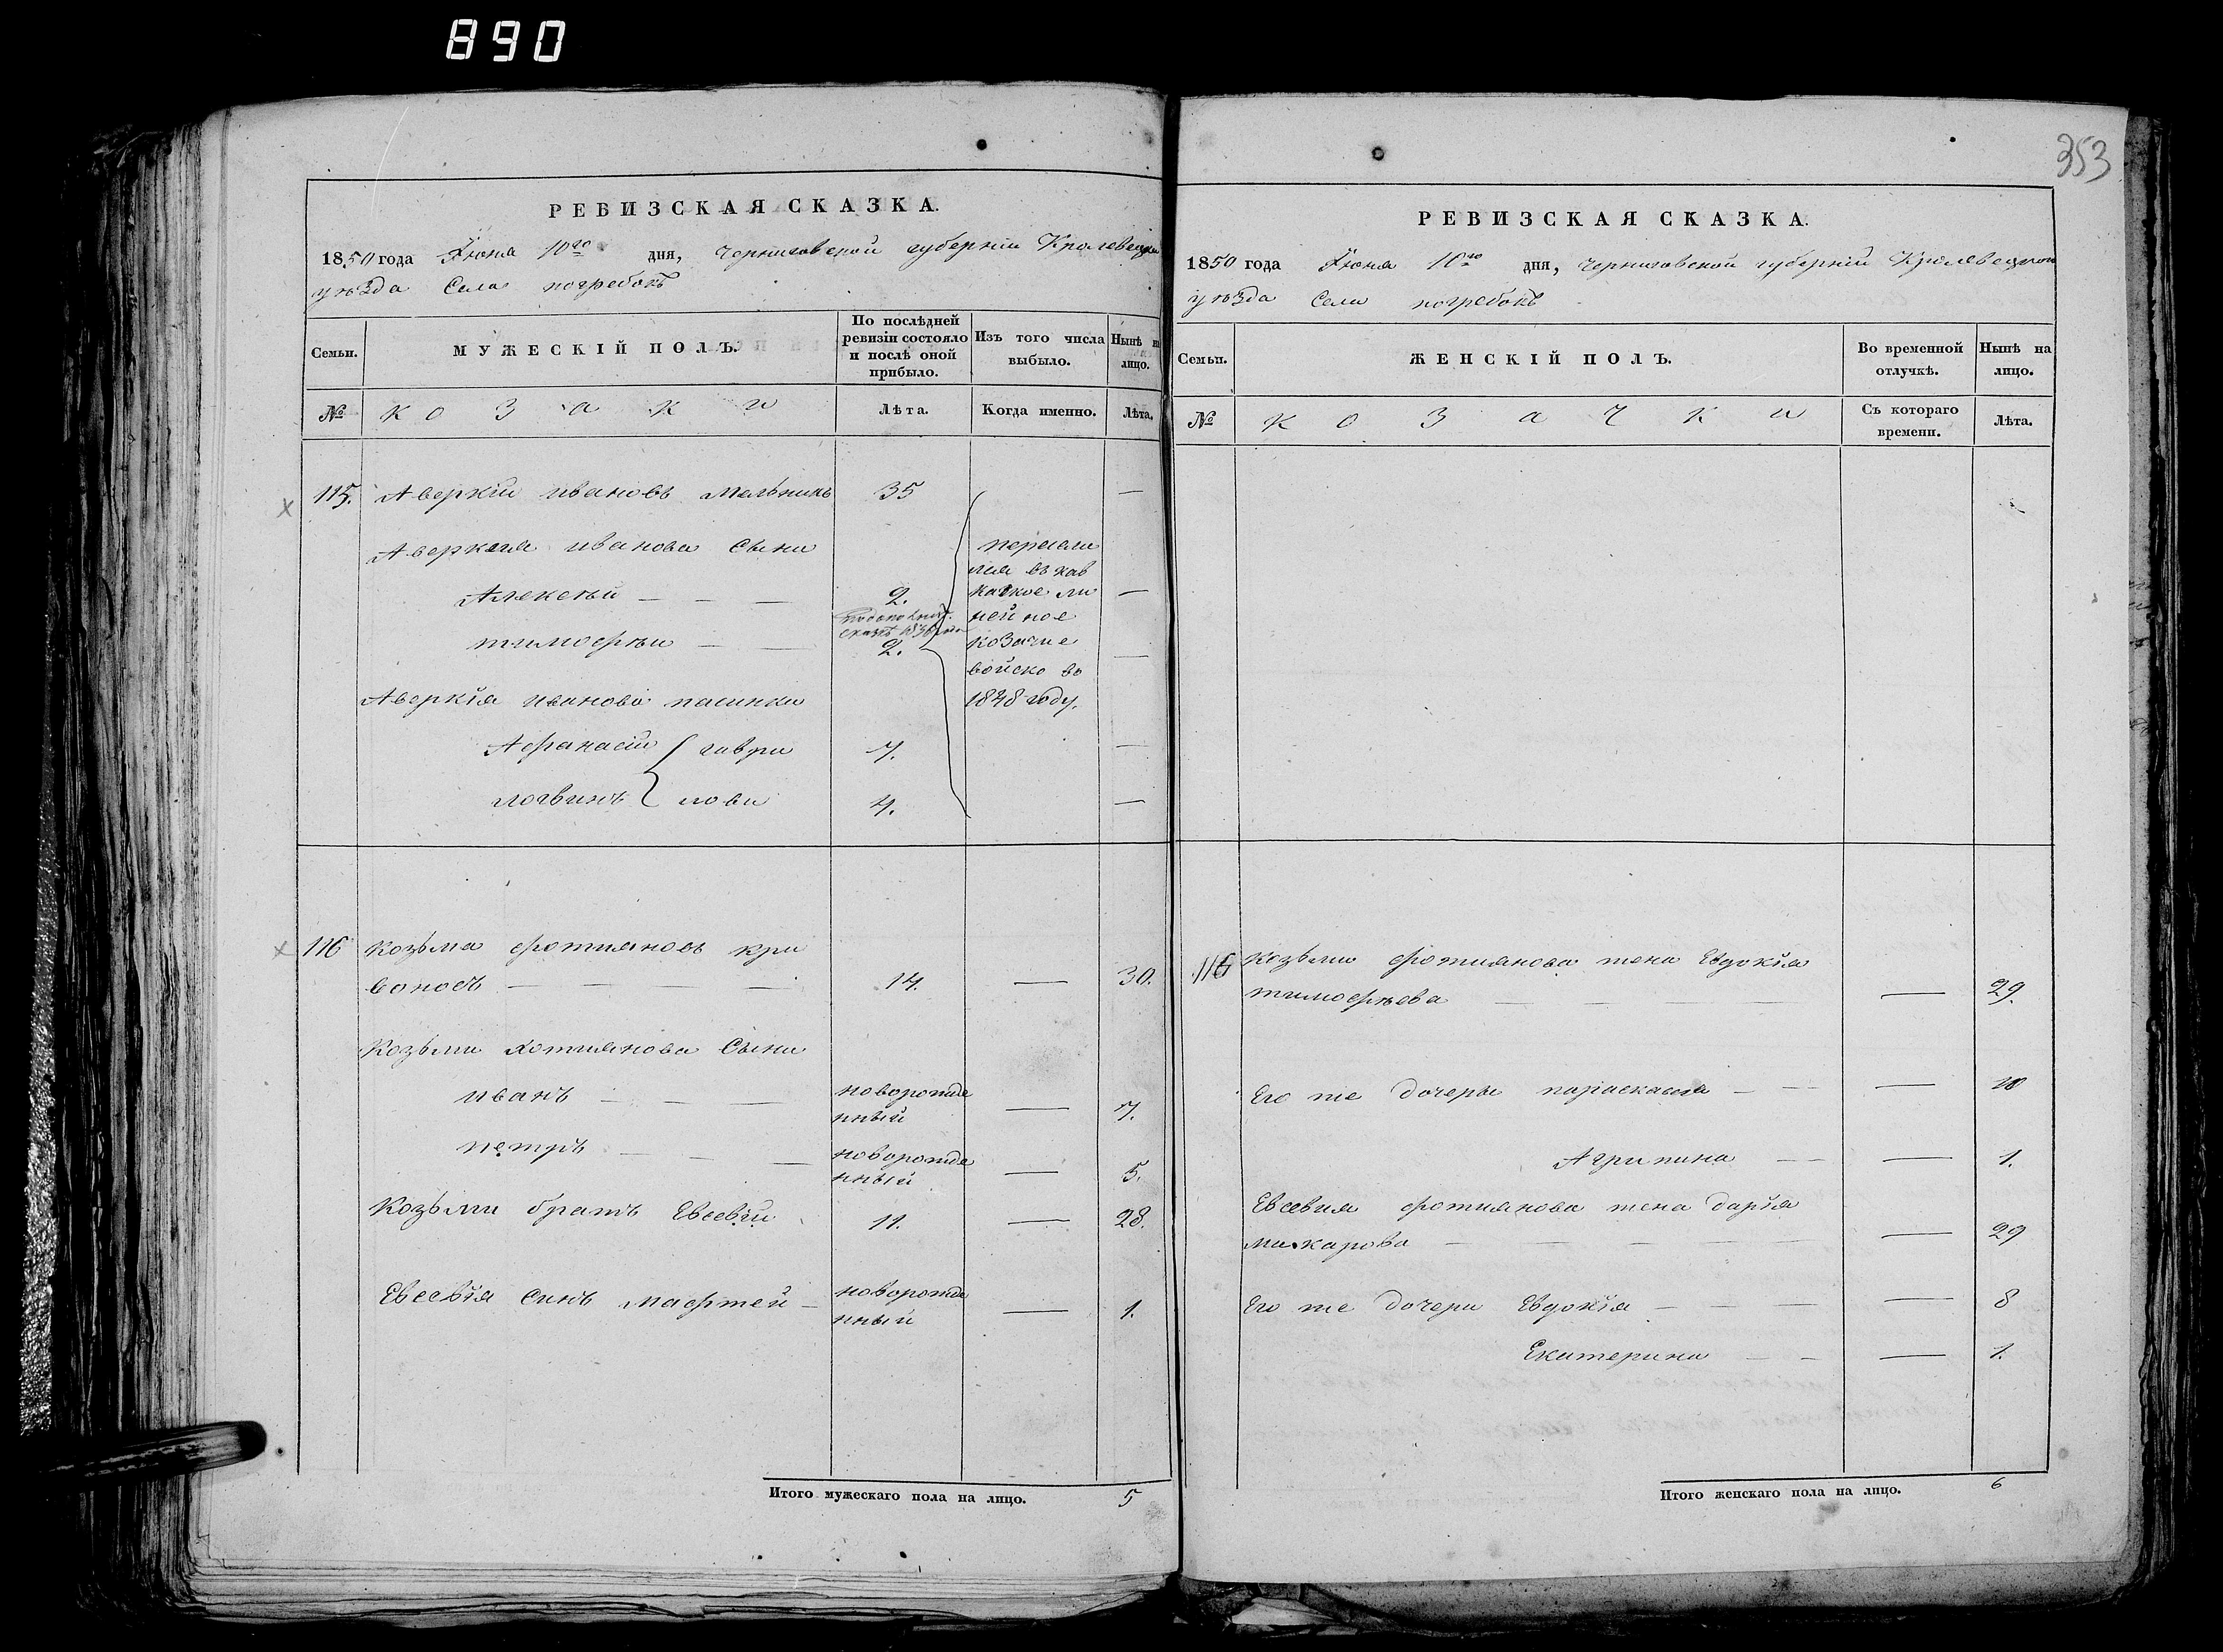 890
353
РЕВИЗСКАЯ СКАЗКА.
1850 года Іюня 10го дня, Черниговской губерніи Кролевецкой
уѣзда Села погребокъ
Семьи.
МУЖЕСКІЙ ПОЛЪ.
По послѣдней ревизіи состояло и послѣ оной прибыло.
Изъ того числа выбыло.
Нынѣ на лицо.
№
козаки
Лѣта.
Когда именно.
Лѣта.
115. Аверкій ивановъ Мельникъ 35 —
Аверкія иванова сыны
пересели
лися въ кав
Алексѣй — — — 2. казкое ли —
сказкѣ
нейное
тимофѣй — — 2. козачье —
войско въ
Аверкія иванова пасинки 1848 году.
Афанасій гаври 7. —
логвинъ лови 4. —
116 козьма фотіяновъ кри
воносъ — — — — 14. — 30.
Козьми хотіянова Сыны
иванъ — — — новорожде
нный — 7.
петръ — — — новорожде
нный — 5.
Козьми братъ Евсевій 11. — 28.
Евсевія синъ Мафтей — новорожде
нный — 1.
Итого мужескаго пола на лицо. 5
РЕВИЗСКАЯ СКАЗКА.
1850 года Іюня 10го дня, Черниговской губерніи Кролевецкой
уѣзда Села погребокъ
Семьи.
ЖЕНСКІЙ ПОЛЪ.
Во временной отлучкѣ.
Нынѣ на лицо.
№
козачки
Съ котораго времени.
Лѣта.
116 козьми фотіянова жена Евдокія
тимофѣева — — — — — 29.
Его же дочери параскавія — — — 10
Агрипина — — — 1.
Евсевия фотиянова жена дарія
макарова — — — — — 29
Его же дочери Евдокія — — — — 8
Екатерина — — — 1.
Итого женскаго пола на лицо. 6